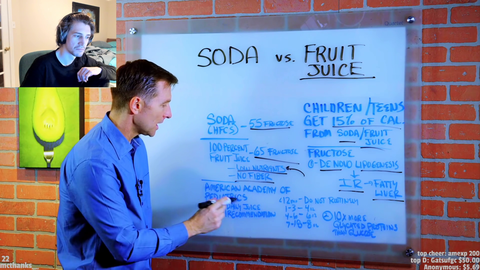 SODA vs. FRUIT
JUICE
SODA
(HFCS) - 55 FRUCTOSE
100 PERCENT
FRUIT JUICE - 65 FRUCTOSE
- LOW NUTRIENTS
- NO FIBER
AMERICAN ACADEMY OF
CHILDREN/TEENS
GET 15% OF CAL.
FROM SODA/FRUIT
JUICE
FRUCTOSE
DE NOVO LIPOGENESIS
IR → FATTY
LIVER
<12mo - DO NOT
1-3 - 4oz
4-6 - 6oz
7-18 - 8oz
10X MORE
GLYCATED PROTEINS
THAN GLUCOSE
22
mcthanks
top cheer: amexp 200
top D: Gatsufgc $50.00
Anonymous: $5.69